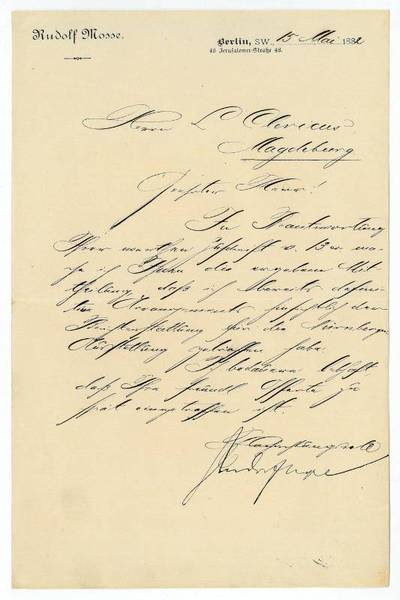 Rudolf Mosse.
Berlin, SW., 15 Mai 1882
48 Jerusalemer-Straße 48.
Herrn L Clericus
Magdeburg
Geehrter Herr!
In Beantwortung
Ihrer werthen Zuschrift v. 13 er ma-
che ich Ihnen die ergebene Mit-
theilung, daß ich bereits defini-
tive Arrangements hinsichtl der
für die Nürnberger
Ausstellung getroffen habe.
Ich bedauere lebhaft,
daß Ihre freundl Offerte zu
spät eingetroffen ist.
Hochachtungsvoll
Rudolf Mosse